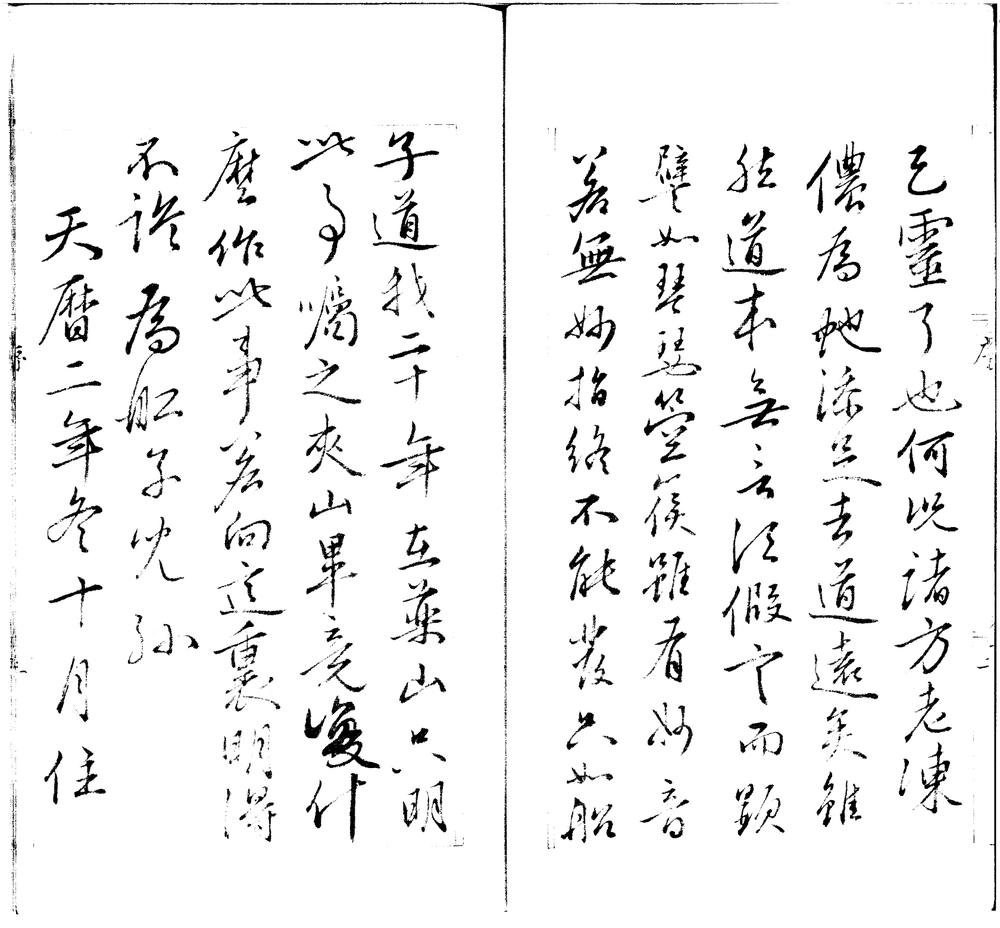 乞靈了也何況諸方老凍
儂為蛇添足去道遠矣雖
然道本無言須假言而顯
譬如琴瑟箜篌雖有妙音
若無妙指終不能發只如船
子道我二十年在藥山只明
此事囑之夾山畢竟復什
麼作此事若向這裏明得
不誑為船子兒孫
天曆二年冬十月住